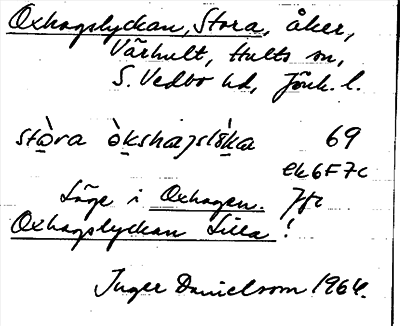 Oxhagslyckan, Stora, åker,
Vårhult, Hults sn,
S. Vedbo hd, Jönk. l.
stò̱ra ò̱ḵshaɡsløḵa 69
ek 6F7c
Läge i Oxhagen. Jfr
Oxhagslyckan Lilla!
Inger Danielsson 1964.